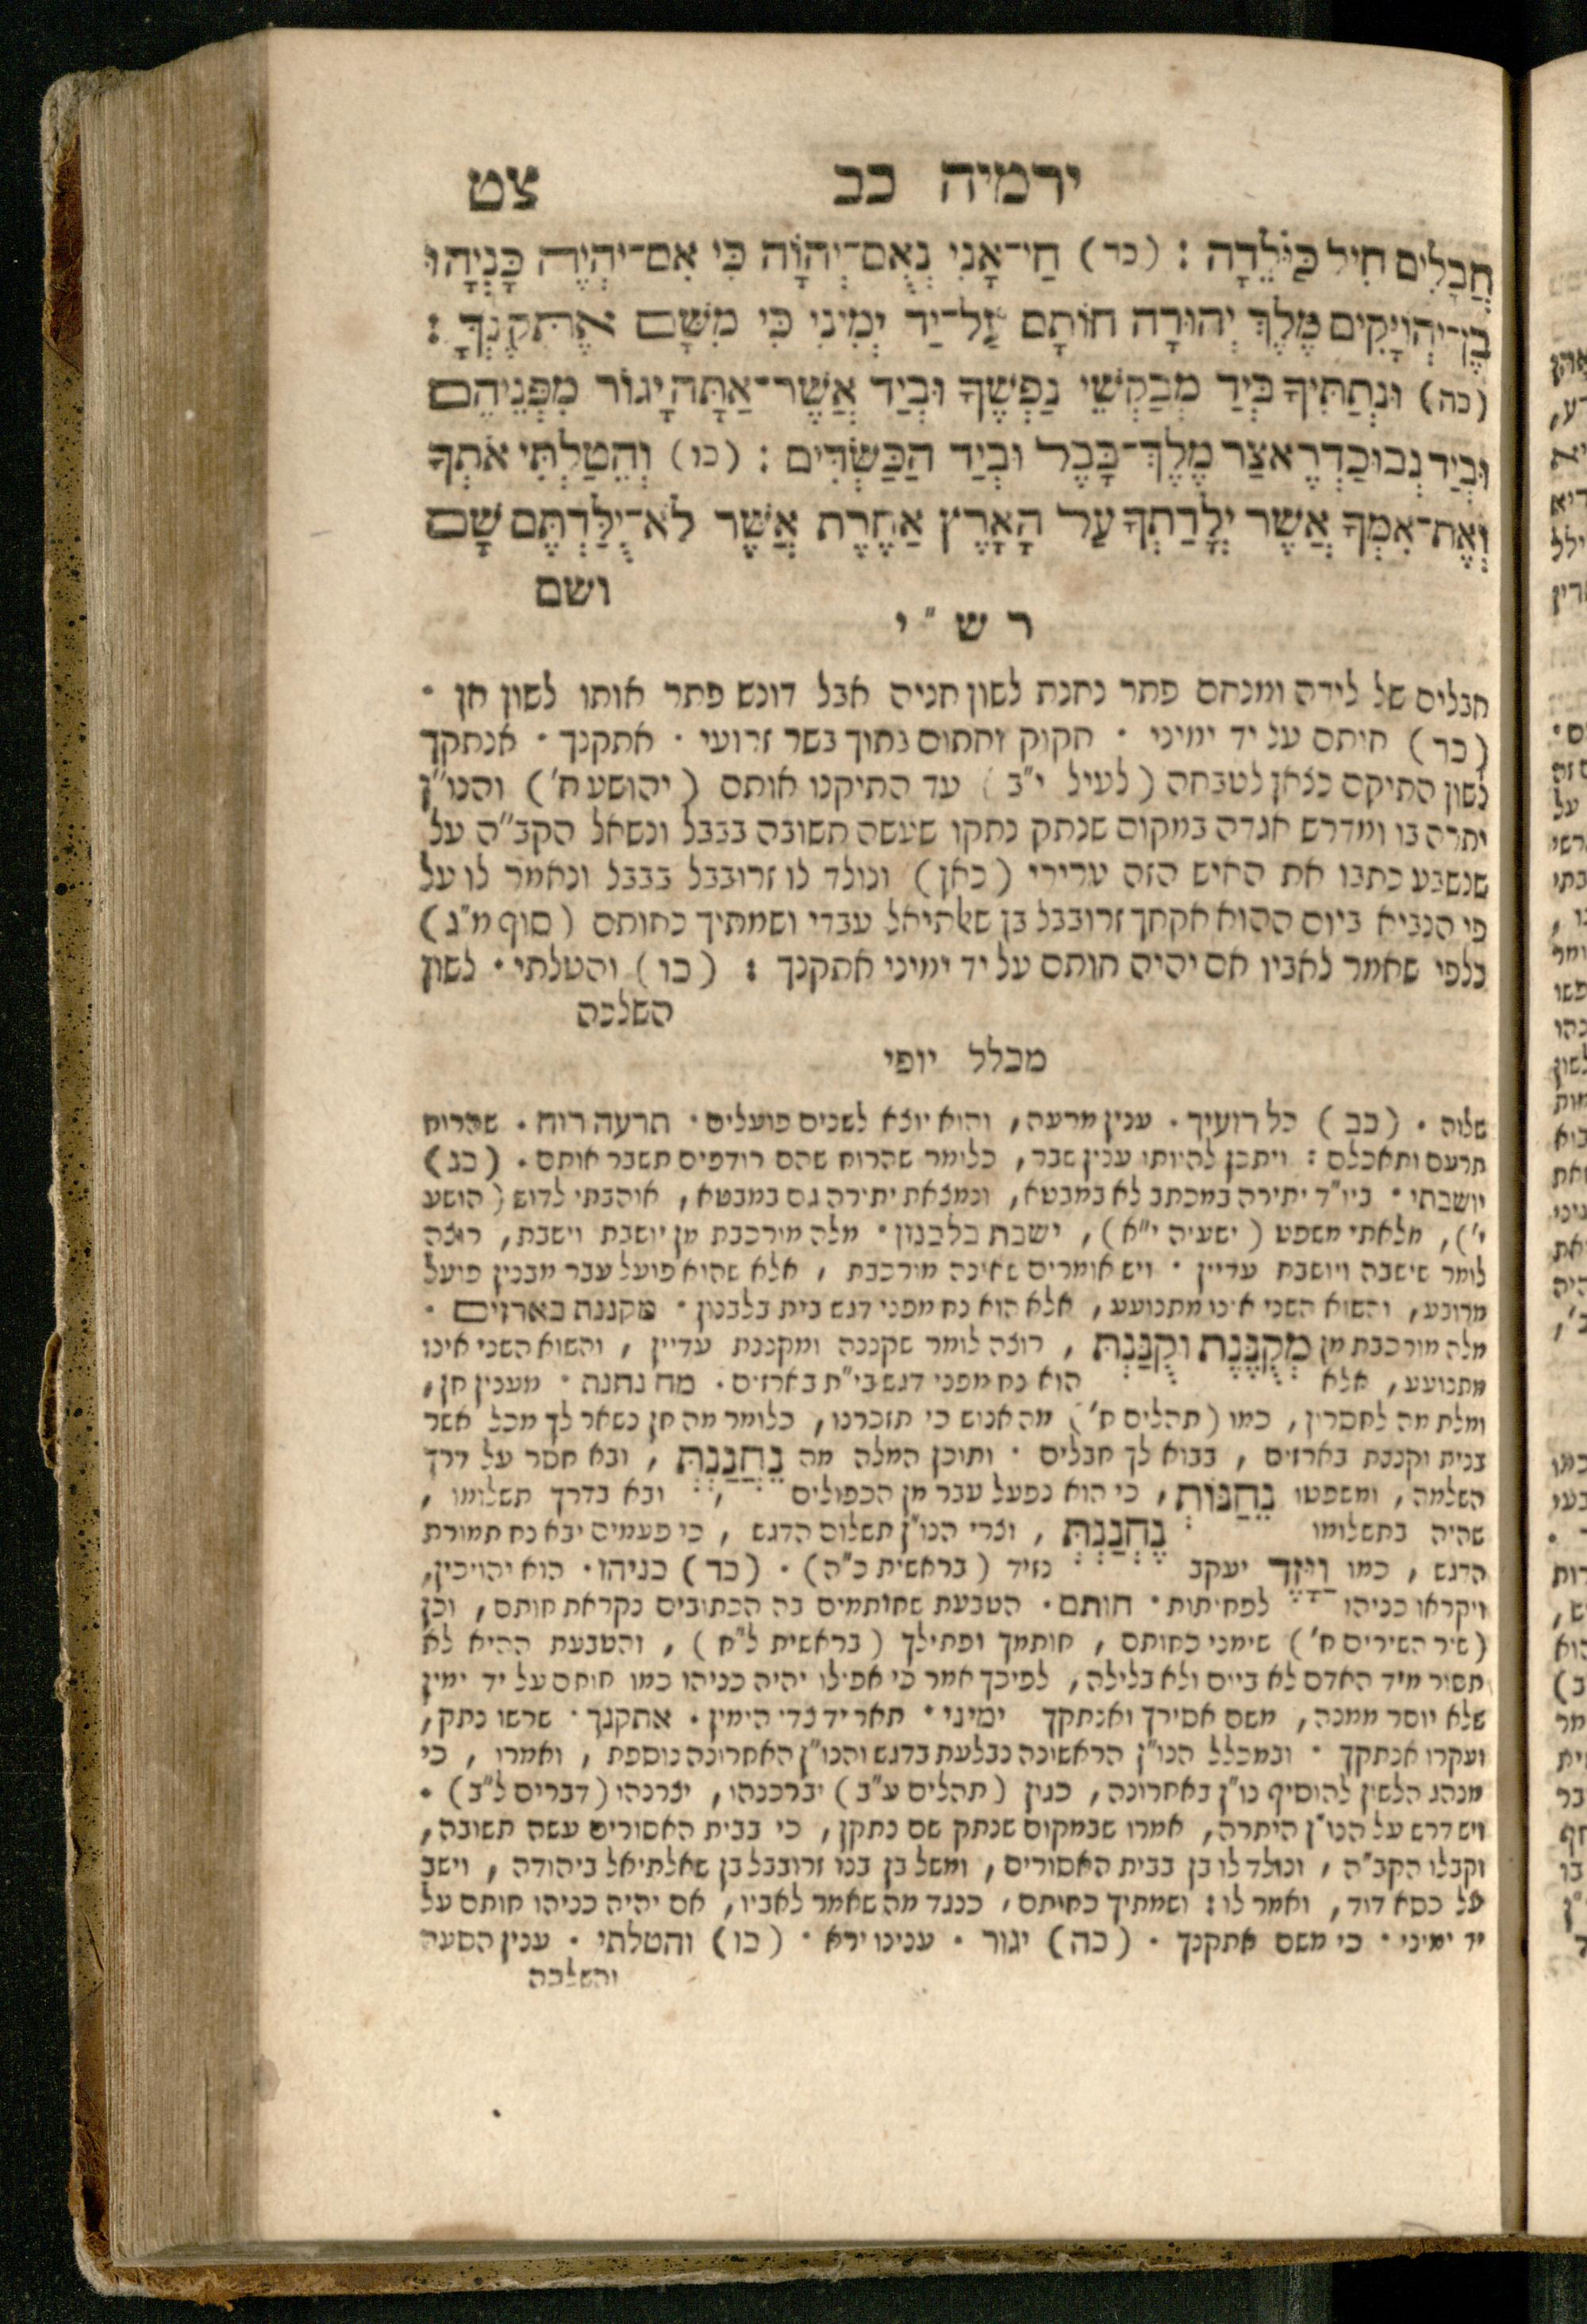 ירמיה כב צט
חֲבָלִים חִיל כַּיֹּלֵדָה : (כד) חַי־אָנִי נְאֻם־יְהוָֹה כִּי אִם־יִהְיֶה כָּנְיָהוּ
בֶן־יְהוֹיָקִים מֶלֶךְ יְהוּדָה חוֹתָם עַל־יַד יְמִינִי כִּי מִשָּׁם אֶתְּקֶנְךָּ :
(כה) וּנְתַתִּיךָ בְּיַד מְבַקְשֵׁי נַפְשֶׁךָ וּבְיַד אֲשֶׁר־אַתָּה יָגוֹר מִפְּנֵיהֶם
וּבְיַד נְבוּכַדְרֶאצַּר מֶלֶךְ־בָּבֶל וּבְיַד הַכַּשְׂדִּים : (כו) וְהֵטַלְתִּי אֹתְךָ
וְאֶת־אִמְּךָ אֲשֶׁר יְלָדַתְךָ עַל הָאָרֶץ אַחֶרֶת אֲשֶׁר לֹא־יֻלַּדְתֶּם שָׁם
ושם
ר ש " י
חבלים של לידה ומנחם פתר נחנת לשון חניה אבל דונש פתר אותו לשון חן ·
(כד) חותם על יד ימיני · חקוק וחתום בתוך בשר זרועי · אתקנך · אנתקך
לשון התיקם כצאן לטבחה (לעיל י"ב) עד התיקנו אותם (יהושע ח') והנו"ן
יתרה בו ומדרש אגדה במקום שנתק נתקו שעשה תשובה בבבל ונשאל הקב"ה על
שנשבע כתבו את האיש הזה ערירי (כאן) ונולד לו זרובבל בבבל ונאמר לו על
פי הנביא ביום ההוא אקחך זרובבל בן שאלתיאל עבדי ושמתיך כחותם (סוף מ"ג)
כלפי שאמר לאביו אם יהיה חותם על יד ימיני אתקנך : (כו) והטלתי · לשון
השלכה
מכלל יופי
שלוה · (כב) כל רועיך · ענין מרעה, והוא יוצא לשנים פועלים · תרעה רוח · שהרוח
תרעם ותאכלם : ויתכן להיותו ענין שבר, כלומר שהרוח שהם רודפים תשבר אותם · (כג)
יושבתי · ביו"ד יתירה במכתב לא במבטא, ונמצאת יתירה גם במבטא, אוהבתי לדוש (הושע
י'), מלאתי משפט (ישעיה י"א), ישבת בלבנון · מלה מורכבת מן יושבת וישבת, רוצה
לומר שישבה ויושבת עדיין · ויש אומרים שאינה מורכבת, אלא שהוא פועל עבר מבנין פועל
מרובע, והשוא השני אינו מתנועע, אלא הוא נח מפני דגש בית בלבנון · מקננת בארזים ·
מלה מורכבת מן מְקֻנֶּנֶת וקֻנַּנְתְּ, רוצה לומר שקננה ומקננת עדיין, והשוא השני אינו
מתנועע, אלא הוא נח מפני דגש בי"ת בארזים · מה נחנת · מענין חן,
ומלת מה לחסרין, כמו (תהלים ח') מה אנוש כי תזכרנו, כלומר מה חן נשאר לך מכל אשר
בנית וקננת בארזים, בבוא לך חבלים · ותוכן המלה מה נֵחֲנַנְתְּ, ובא חסר על דרך
השלמה, ומשפטו נֵחַנּוֹת, כי הוא נפעל עבר מן הכפולים, ובא בדרך תשלומו,
שהיה בתשלומו נֶחְנַנְתְּ, וצרי הנו"ן תשלום הדגש, כי פעמים יבא נח תמורת
הדגש, כמו וַיָּזֶד יעקב נזיד (בראשית כ"ה) · (כד) כניהו · הוא יהויכין,
ויקראו כניהו לפחיתות · חותם · הטבעת שחותמים בה הכתובים נקראת חותם, וכן
(שיר השירים ח') שימני כחותם, חותמך ופתילך (בראשית ל"ח), והטבעת ההיא לא
תסור מיד האדם לא ביום ולא בלילה, לפיכך אמר כי אפילו יהיה כניהו כמו חותם על יד ימין
שלא יוסר ממנה, משם אסירך ואנתקך ימיני · תאר יד צדי הימין · אתקנך · שרשו נתק,
ועקרו אנתקך · ובמכלל הנו"ן הראשונה נבלעת בדגש והנו"ן האחרונה נוספת, ואמרו, כי
מנהג הלשון להוסיף נו"ן באחרונה, כגון (תהלים ע"ב) יברכנהו, יצרנהו (דברים ל"ב) ·
ויש דרש על הנו"ן היתרה, אמרו שבמקום שנתק שם נתקן, כי בבית האסורים עשה תשובה,
וקבלו הקב"ה, ונולד לו בן בבית האסורים, ומשל בן בנו זרובבל בן שאלתיאל ביהודה, וישב
על כסא דוד, ואמר לו : ושמתיך כחותם, כנגד מה שאמר לאביו, אם יהיה כניהו חותם על
יד ימיני · כי משם אתקנך · (כה) יגור · ענינו ירא · (כו) והטלתי · ענין הסעה
והשלכה